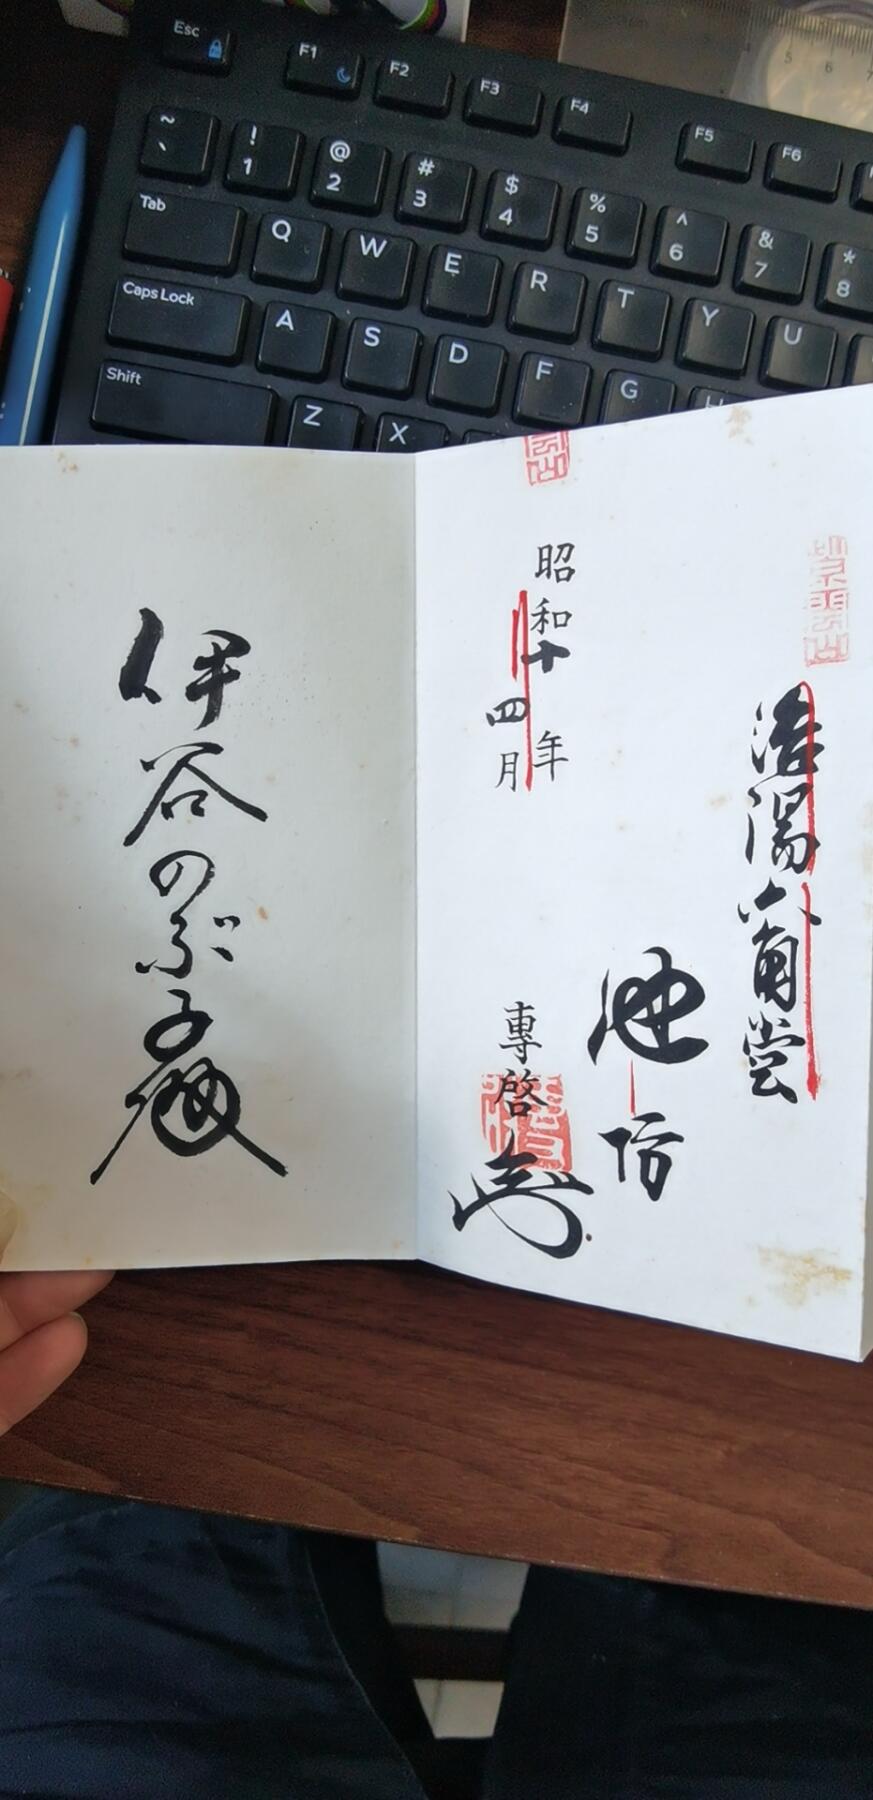 洛陽六角堂
池
坊
昭和十 年
四月
專啓
伊谷のぶ子殿
Esc
F1
F2
F3
F4
F5
F6
~ `
! 1
@ 2
# 3
$ 4
% 5
^ 6
& 7
* 8
Tab
Q
W
E
R
T
Y
U
Caps Lock
A
S
D
F
G
H
Shift
Z
X
5 6 7